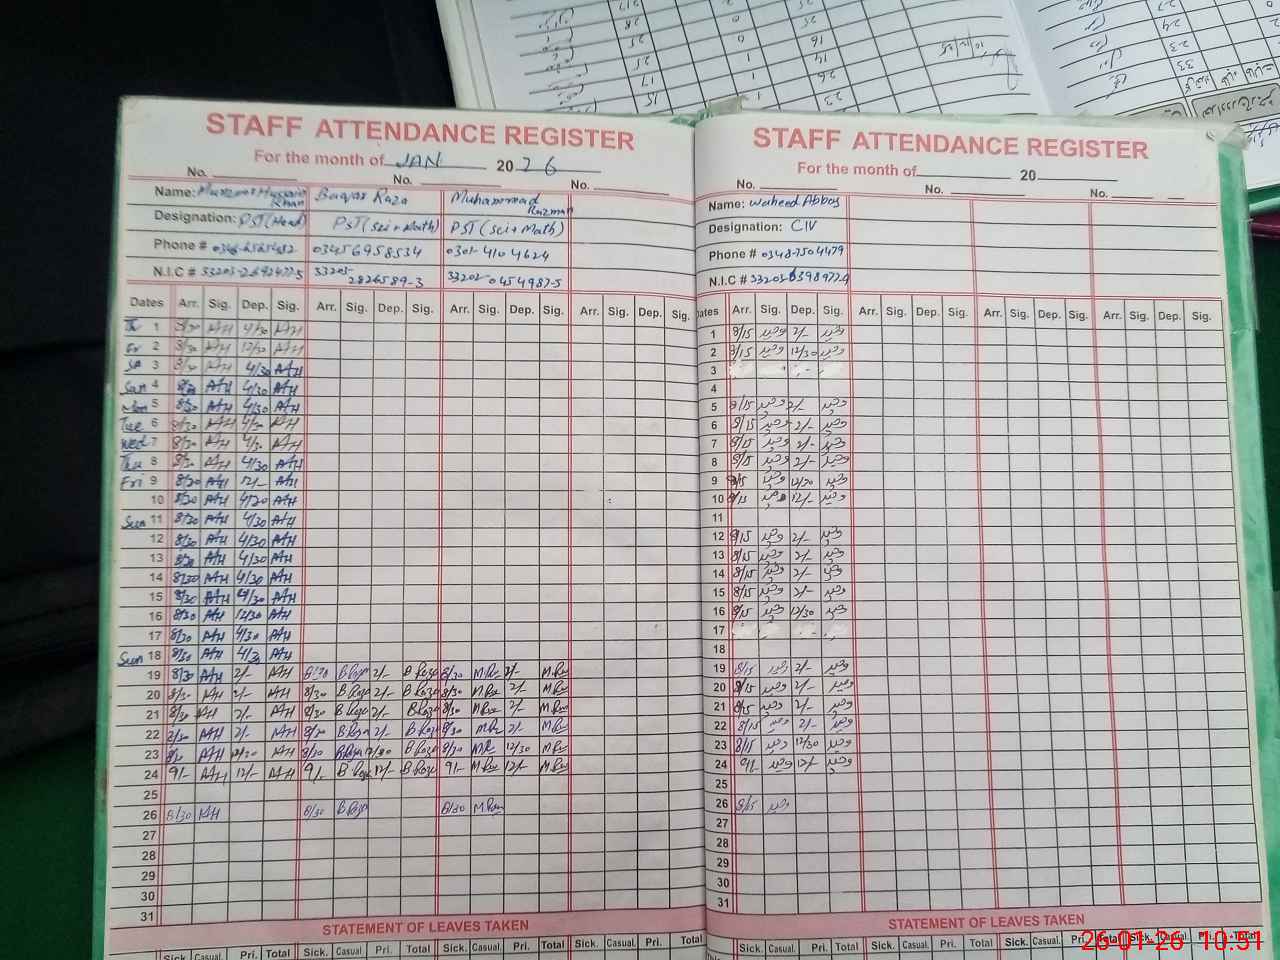 STAFF ATTENDANCE REGISTER
For the month of JAN 20 26
No. No. No.
Name: Hussain Khan Baqar Raza Muhammad
Designation: PST(Head) PST(Sci+Math) PST(Sci+Math)
Phone # 03456958534 0301-4104624
N.I.C # 33203-2692477-5 33203-2826589-3 33202-0454987-5
Dates Arr. Sig. Dep. Sig. Arr. Sig. Dep. Sig. Arr. Sig. Dep. Sig. Arr. Sig. Dep. Sig.
1 8/30 AH 4/30 AH
Fr 2 8/30 AH 12/30 AH
Sa 3 8/30 AH 4/30 AH
Sun 4 8/30 AH 4/30 AH
Mon 5 8/30 AH 4/30 AH
Tue 6 8/30 AH 4/30 AH
Wed 7 8/30 AH 4/30 AH
Thu 8 8/30 AH 4/30 AH
Fri 9 8/30 AH 12/- AH
10 8/30 AH 4/30 AH
Sun 11 8/30 AH 4/30 AH
12 8/30 AH 4/30 AH
13 8/30 AH 4/30 AH
14 8/30 AH 4/30 AH
15 8/30 AH 4/30 AH
16 8/30 AH 12/30 AH
17 8/30 AH 4/30 AH
Sun 18 8/30 AH 4/30 AH
19 8/30 AH 2/- AH 8/30 B Raza 2/- B Raza 8/30 2/-
20 8/30 AH 2/- AH 8/30 B Raza 2/- B Raza 8/30 2/-
21 8/30 AH 2/- AH 8/30 B Raza 2/- B Raza 8/30 2/-
22 8/30 AH 2/- AH 8/30 B Raza 2/- B Raza 8/30 2/-
23 AH 12/30 AH 8/30 B Raza 12/30 B Raza 8/30 12/30
24 9/- AH 12/- AH 9/- B Raza 12/- B Raza 9/- 12/-
25
26 8/30 AH 8/30 B Raza 8/30
27
28
29
30
31
STATEMENT OF LEAVES TAKEN
Sick. Casual. Pri. Total Sick. Casual. Pri. Total Sick. Casual. Pri. Total Sick. Casual. Pri. Total
STAFF ATTENDANCE REGISTER
For the month of 20
No. No. No.
Name: Waheed Abbas
Designation: CIV
Phone # 0348-7504479
N.I.C #
Dates Arr. Sig. Dep. Sig. Arr. Sig. Dep. Sig. Arr. Sig. Dep. Sig. Arr. Sig. Dep. Sig.
1 8/15 وحید 2/- وحید
2 8/15 وحید 12/30 وحید
3
4
5 8/15 وحید 2/- وحید
6 8/15 وحید 2/- وحید
7 8/15 وحید 2/- وحید
8 8/15 وحید 2/- وحید
9 8/15 وحید 12/30 وحید
10 8/15 وحید 12/- وحید
11
12 8/15 وحید 2/- وحید
13 8/15 وحید 2/- وحید
14 8/15 وحید 2/- وحید
15 8/15 وحید 2/- وحید
16 8/15 وحید 12/30 وحید
17
18
19 8/15 وحید 2/- وحید
20 8/15 وحید 2/- وحید
21 8/15 وحید 2/- وحید
22 8/15 وحید 2/- وحید
23 8/15 وحید 12/30 وحید
24 9/- وحید 12/- وحید
25
26 8/15 وحید
27
28
29
30
31
STATEMENT OF LEAVES TAKEN
Sick. Casual. Pri. Total Sick. Casual. Pri. Total Sick. Casual. Pri. Total Sick. Casual. Pri. Total
26-01-26 10:51